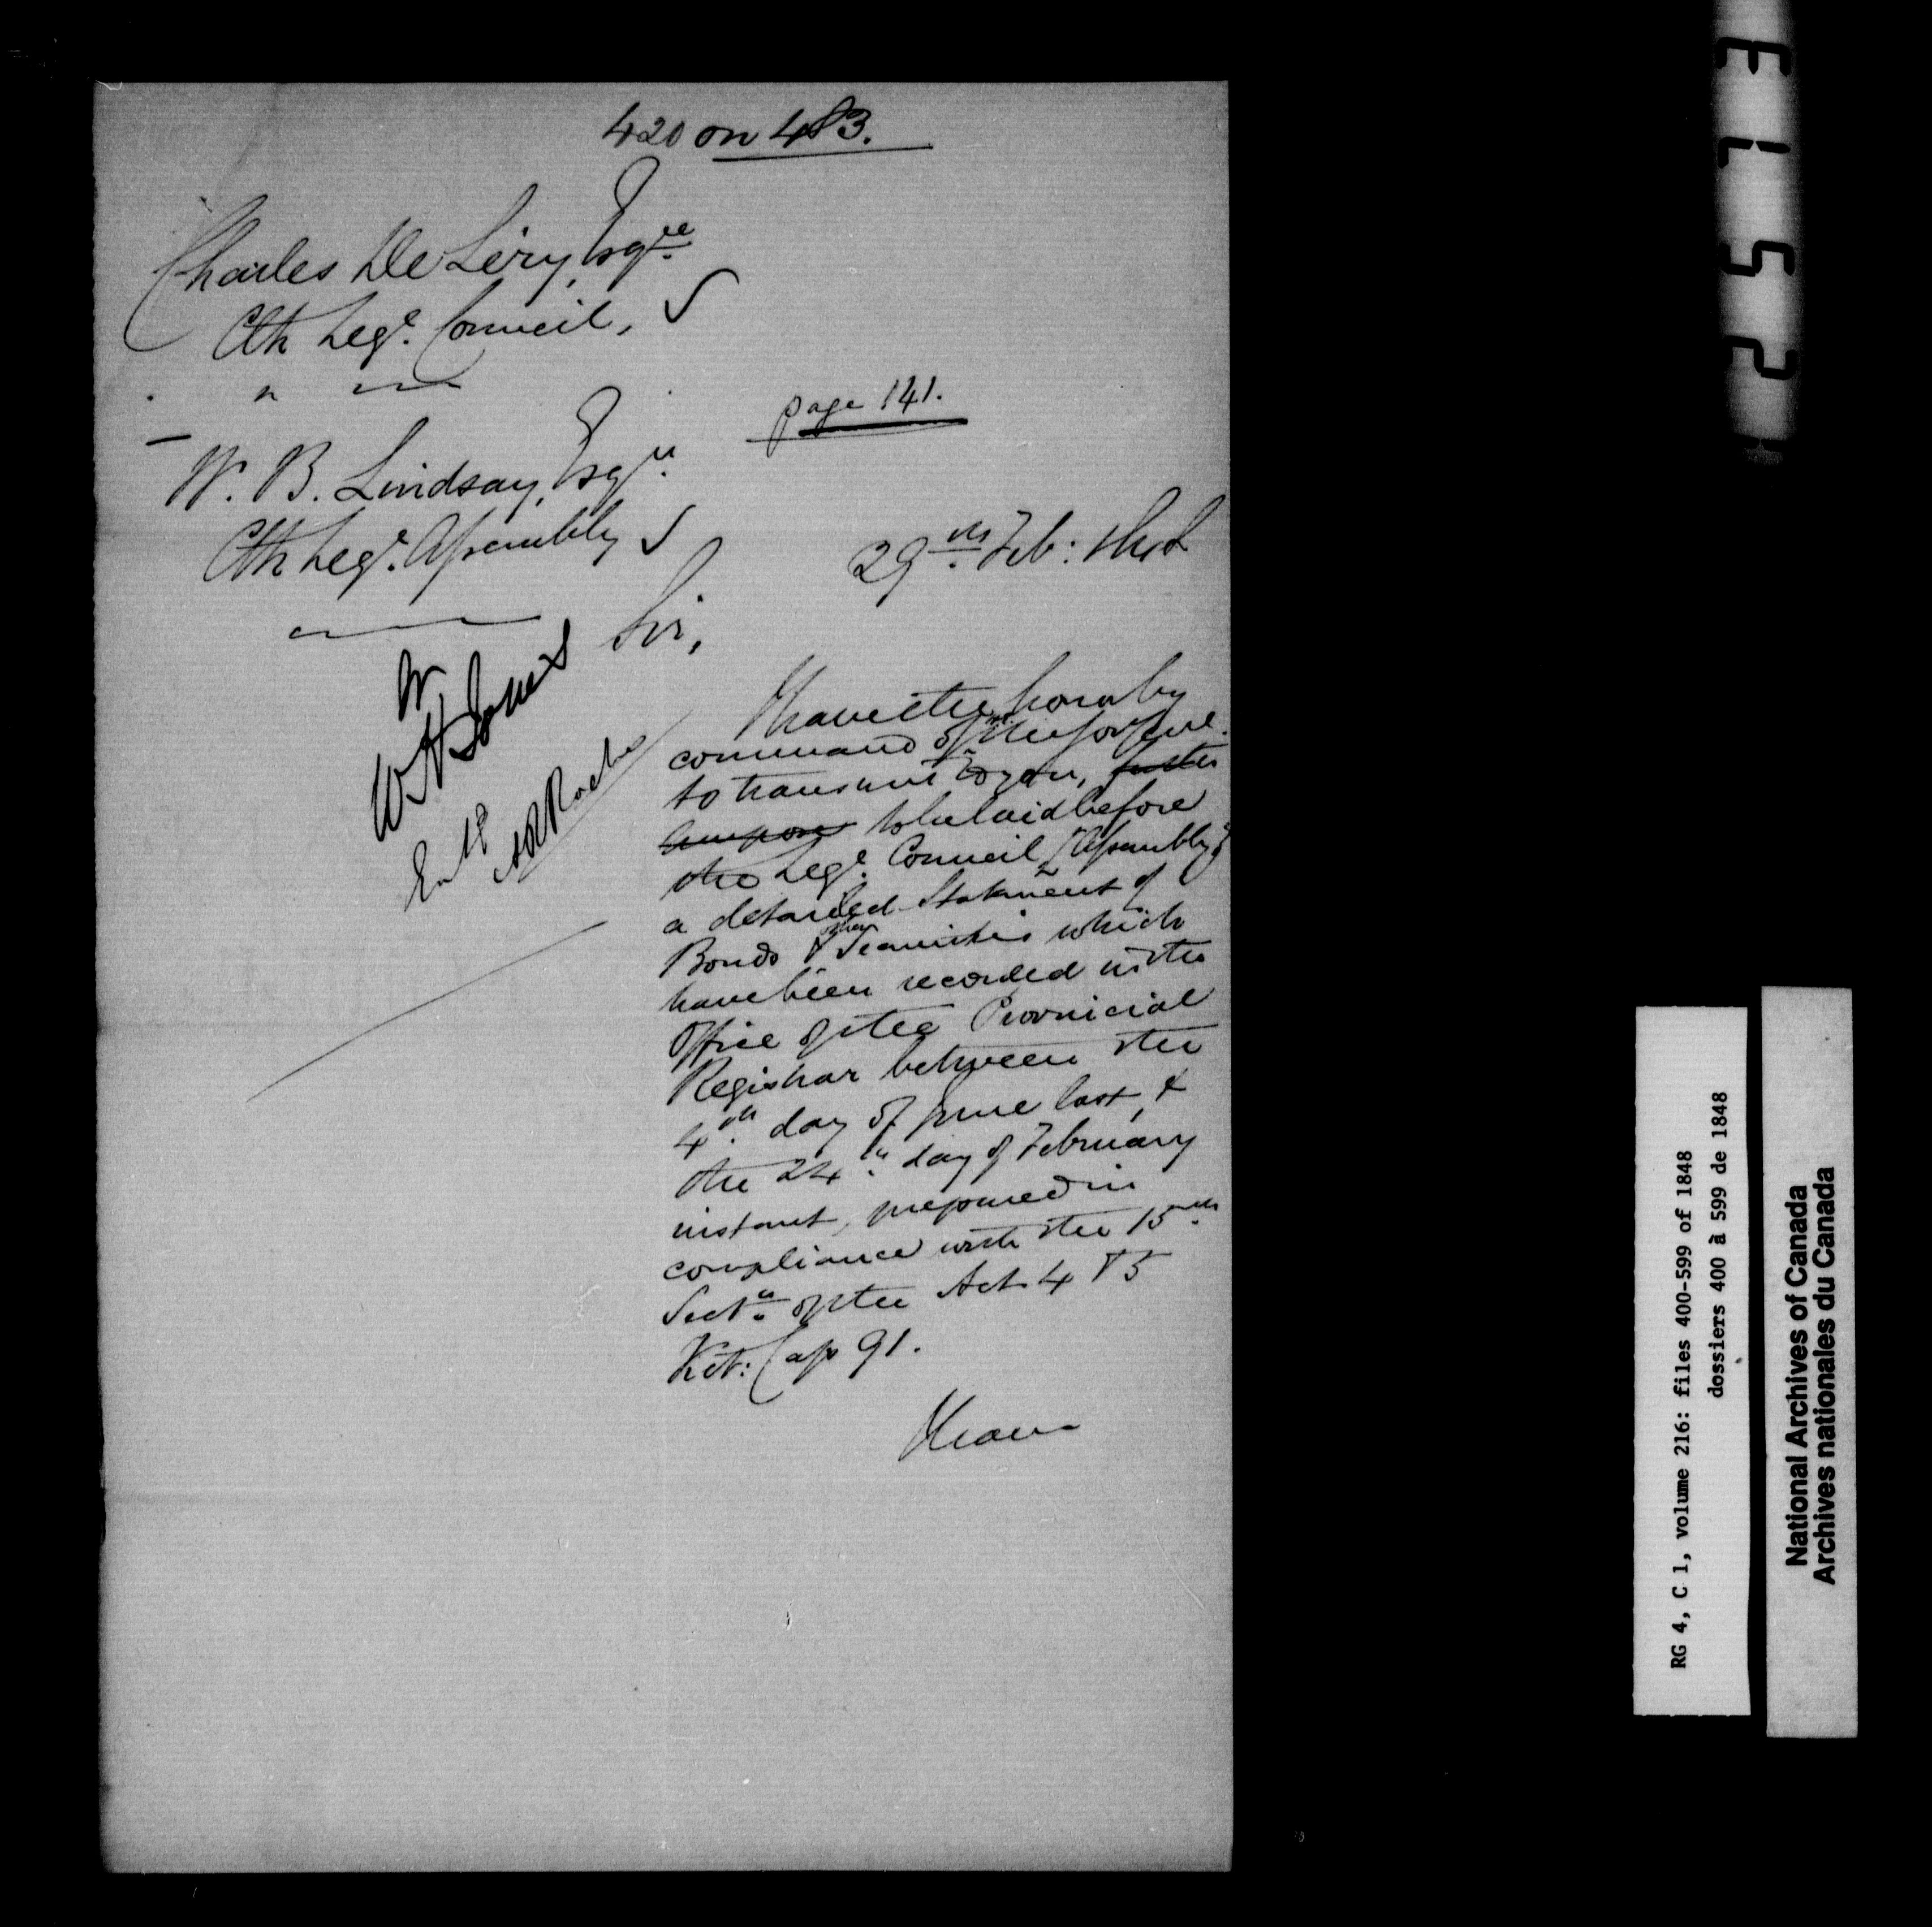 420 on 483.
Charles De Léry, Esqre
Clk Lege. Council,
" "
page 141.
W. B. Lindsay, Esqre
Clk Lege. Assembly
29th Feb: 1848
Sir,
W H Jones
Entd
A R Roche
I have the honor by
command of the Govr Genl.
to transmit to you, for the
purpose to be laid before
the Lege. Council [Assembly]
a detailed Statement of
Bonds & other Securities which
have been recorded in the
Office of the Provincial
Registrar between the
4th day of June last, &
the 24th day of February
instant, prepared in
compliance with the 15th
Sectn. of the Act 4 & 5
Vict: Cap 91.
I have
E L 5 2
RG 4, C 1, volume 216: files 400-599 of 1848
dossiers 400 à 599 de 1848
National Archives of Canada
Archives nationales du Canada